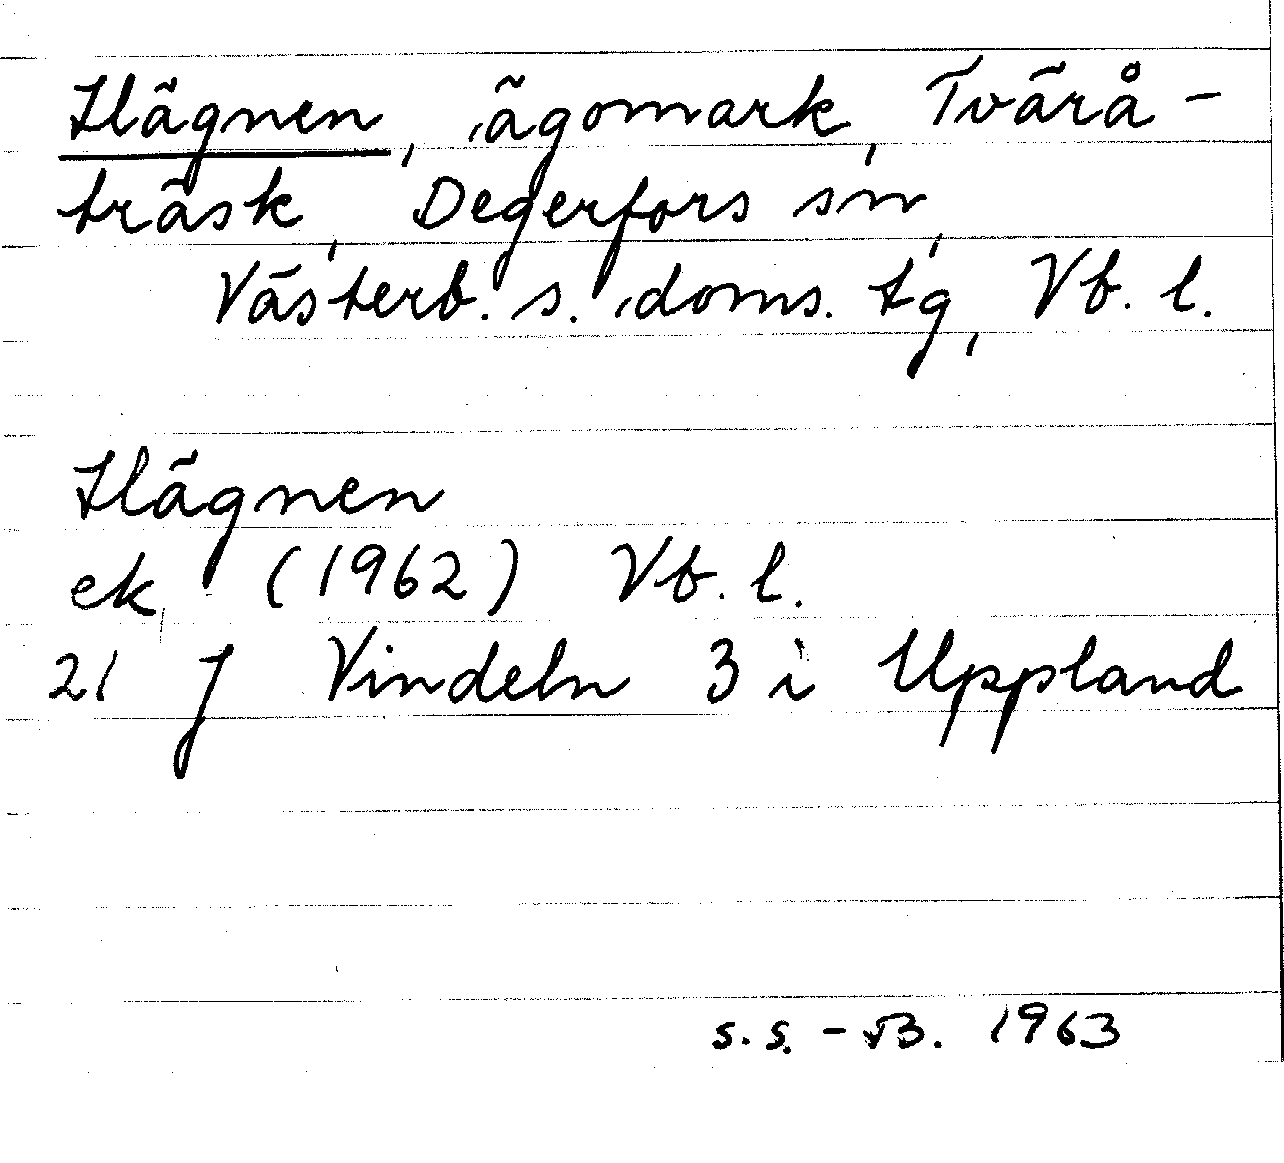 Hägnen, ägomark, Tvärå-
träsk, Degerfors sn,
Västerb. s. doms. tg, Vb. l.
Hägnen
ek, (1962) Vb. l.
21 J Vindeln 3 i Uppland
s.s. - B. 1963